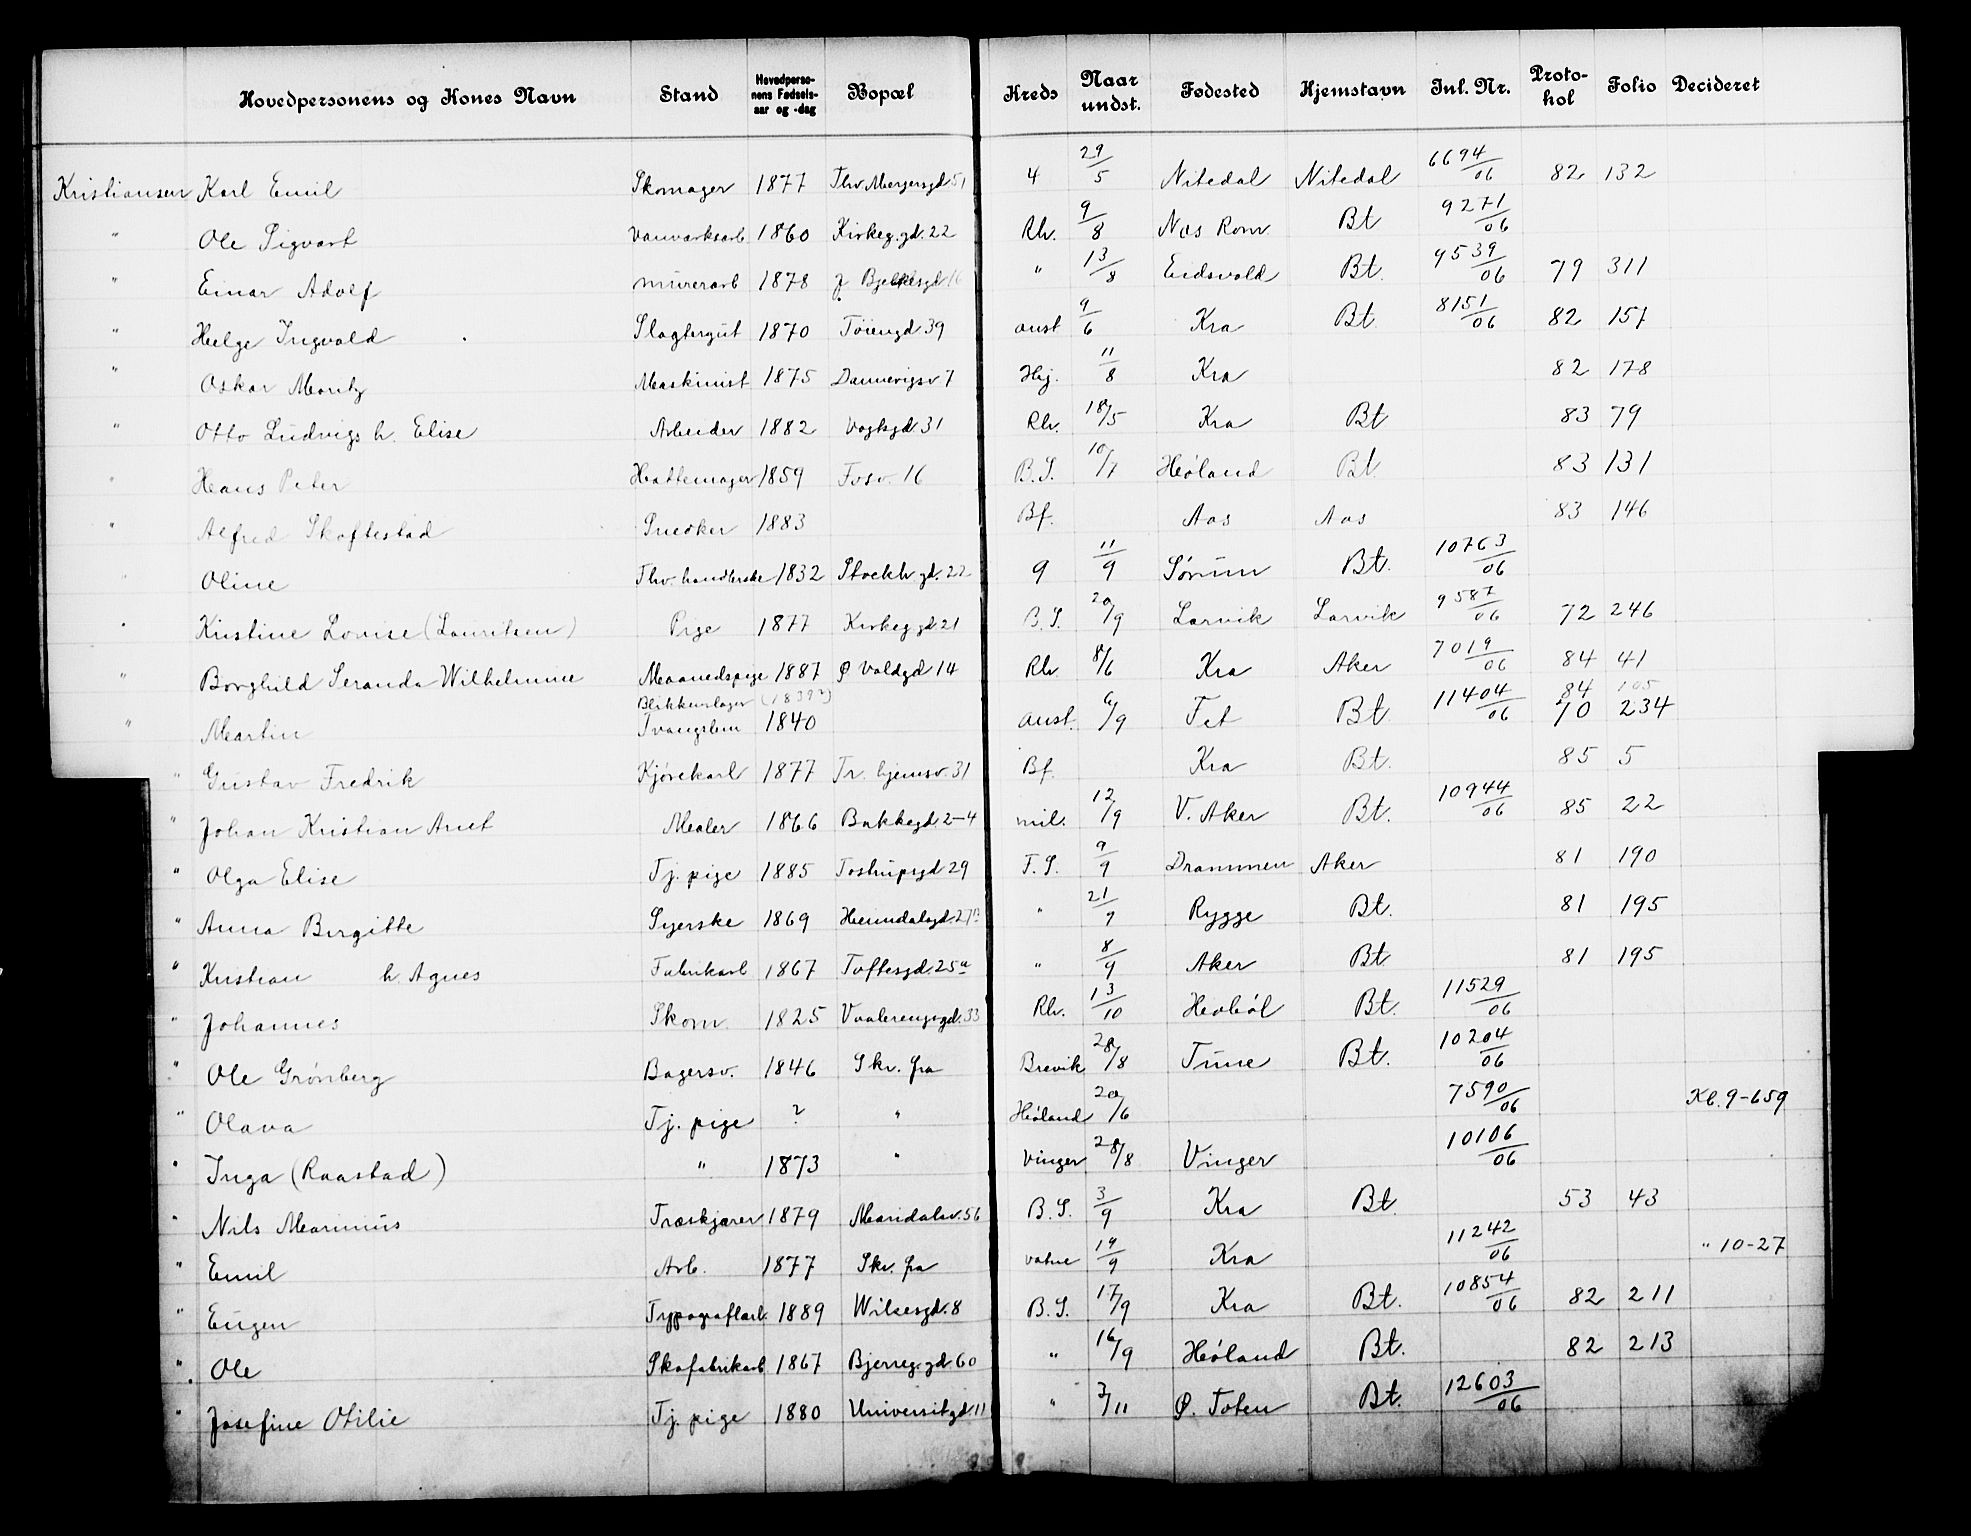 Hovedpersonens og Kones Navn Stand Hovedperso-nens Fødsels-aar og -dag Bopæl Kreds Naar undst. Fødested Hjemstavn Inl. Nr. Proto-kol Folio Decideret
Kristiansen Karl Emil Skomager 1877 Thv. Meyersgd 51 4 29/5 Nitedal Nitedal 6694/06 82 132
" Ole Sigvart Vanværksarb 1860 Kirkeg.gd. 22 Rh. 9/8 Næs Rom Bt 9271/06
" Einar Adolf murerarb 1878 J Bjelkesgd 16 " 13/8 Eidsvold Bt. 9539/06 79 311
" Helge Ingvald Slagtergut 1870 Töiengd. 39 anst 9/6 Kra Bt 8151/06 82 157
" Oskar Moritz Maskinist 1875 Dannevigsv 7 Hkj. 11/8 Kra 82 178
" Otto Ludvigs h. Elise Arbeider 1882 Vogtsgd 31 Rh. 18/5 Kra Bt 83 79
" Hans Peter Hattemager 1859 Fosv. 16 B.S. 10/7 Høland Bt 83 131
" Alfred Skoftestad Snedker 1883 Bf. Aas Aas 83 146
" Oline Thv. handlerske 1832 Stockh gd. 22 9 11/9 Sørum Bt. 10763/06
" Kristine Lovise (Lauritsen) Pige 1877 Kirkeg.gd 21 B.S. 20/9 Larvik Larvik 9587/06 72 246
" Borghild Seranda Wilhelmine Maanedspige 1887 Ø Voldgd 14 Rh 8/6 Kra Aker 7019/06 84 41
" Martin Blikkenslager Tvangslem (1839?) 1840 anst. 6/9 Fet Bt 11404/06 84 105 70 234
" Gustav Fredrik Kjørekarl 1877 Tr. hjemsv. 31 Bf. Kra Bt. 85 5
" Johan Kristian Arnt Maler 1866 Bakkegd. 2-4 mil. 12/9 V. Aker Bt. 10944/06 85 22
" Olga Elise Tj. pige 1885 Tostrupsgd 29 F.S. 9/9 Drammen Aker 81 190
" Anna Birgitte Syerske 1869 Heimdalsgd. 27B " 21/7 Rygge Bt. 81 195
" Kristian h. Agnes Fabrikarb 1867 Toftesgd. 25a " 8/9 Aker Bt 81 195
" Johannes Skom. 1825 Vaalerengsgd. 33 Rh. 13/10 Hobøl Bt. 11529/06
" Ole Grønberg Bagersv. 1846 Skr. fra Brevik 28/8 Tune Bt. 10204/06
" Olava Tj. pige ? " Høland 20/6 7590/06 Kl. 9-659
" Inga (Raastad) " 1873 " Vinger 28/8 Vinger 10106/06
" Nils Marinius Træskjærer 1879 Maridalsv. 56 B.S. 3/9 Kra Bt 53 43
" Emil Arb. 1877 Skr. fra vatne 19/9 Kra 11242/06 " 10-27
" Eugen Typografarb. 1889 Wilsesgd. 8 B.S. 17/9 Kra Bt. 10854/06 82 211
" Ole Skofabrikarb 1867 Bjerreg.gd 60 " 16/9 Høland Bt. 82 213
" Josefine Otilie Tj. pige 1880 Universitgd. 11 " 3/11 Ø. Toten Bt. 12603/06